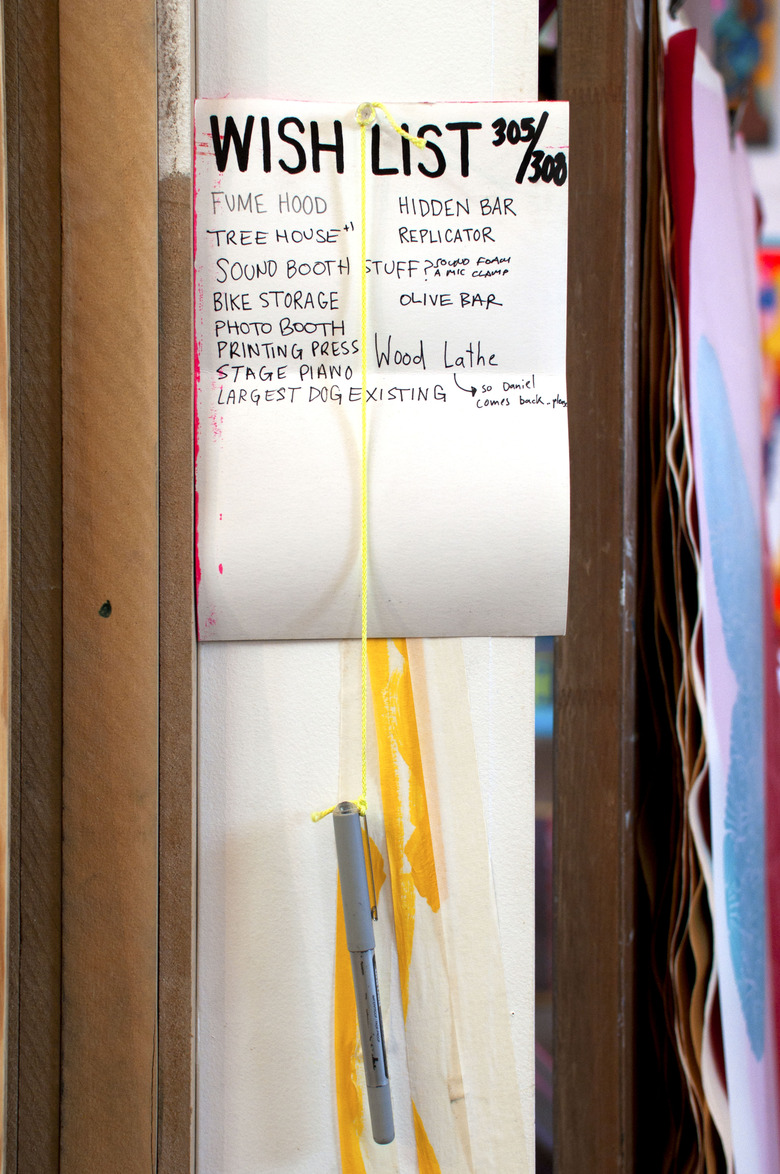 WISH LIST 305/308
FUME HOOD
TREE HOUSE +1
SOUND BOOTH STUFF? SOUND FOAM
A MIC CLAMP
BIKE STORAGE
PHOTO BOOTH
PRINTING PRESS
STAGE PIANO
LARGEST DOG EXISTING
HIDDEN BAR
REPLICATOR
OLIVE BAR
Wood Lathe
so Daniel
comes back - please